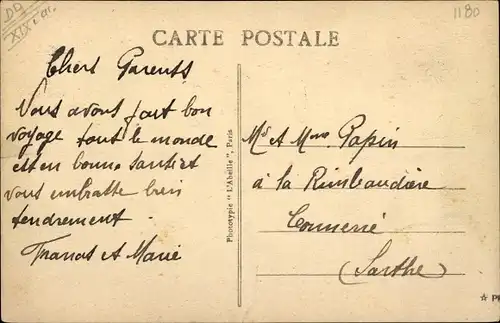 DD
XIXe ar.
1180
CARTE POSTALE
Chers Parents
Nous avons fait bon
voyage tout le monde
est en bonne santé et
vous embrasse bien
tendrement
et Marie
Phototypie "L'Abeille", Paris
Mr et Mme Papin
à la Rimbaudière
Connerré
(Sarthe)